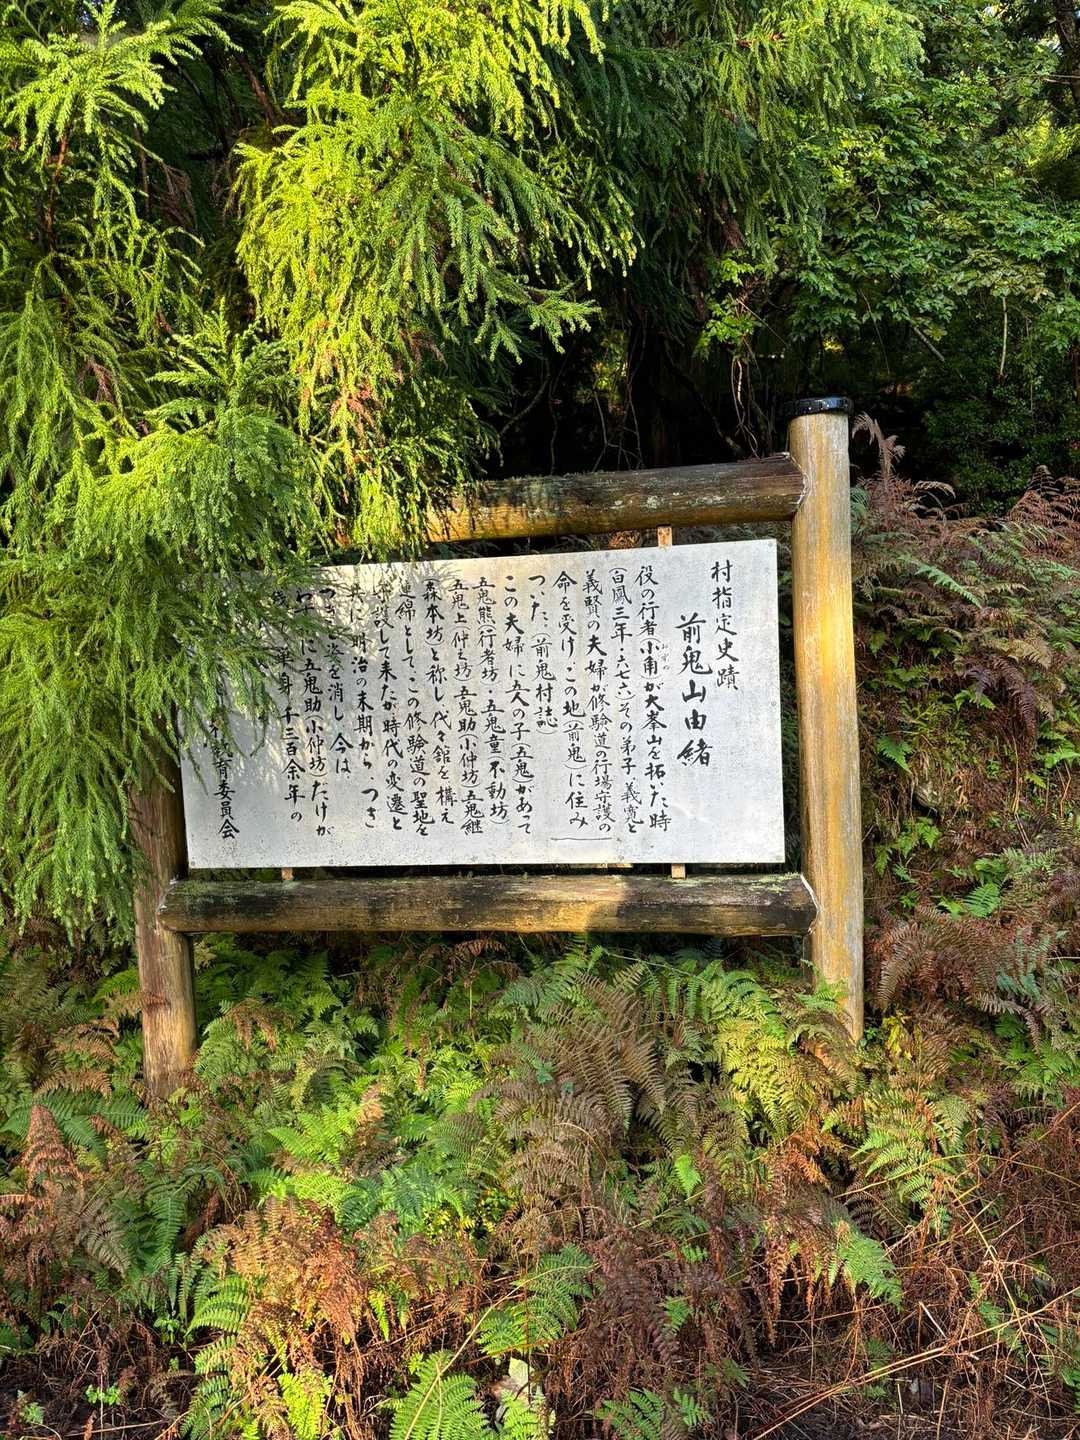 村指定史蹟
前鬼山由緒
役の行者(小角)が大峯山を拓いた時
おずの
(白鳳三年・六七六)その弟子、義寛と
義賢の夫婦が修験道の行場守護の
命を受け、この地(前鬼)に住み
ついた、(前鬼村誌)
この夫婦に五人の子(五鬼)があって
五鬼熊(行者坊・五鬼童(不動坊)
五鬼上(仲之坊)五鬼助(小仲坊)五鬼継
(森本坊)と称し、代々舘を構え
連綿として、この修験道の聖地を
設して来たが時代の変遷と
共に、明治の末期から、つぎ
つぎと姿を消し、今は
に五鬼助(小仲坊)だけが
単身、千三百余年の
教育委員会